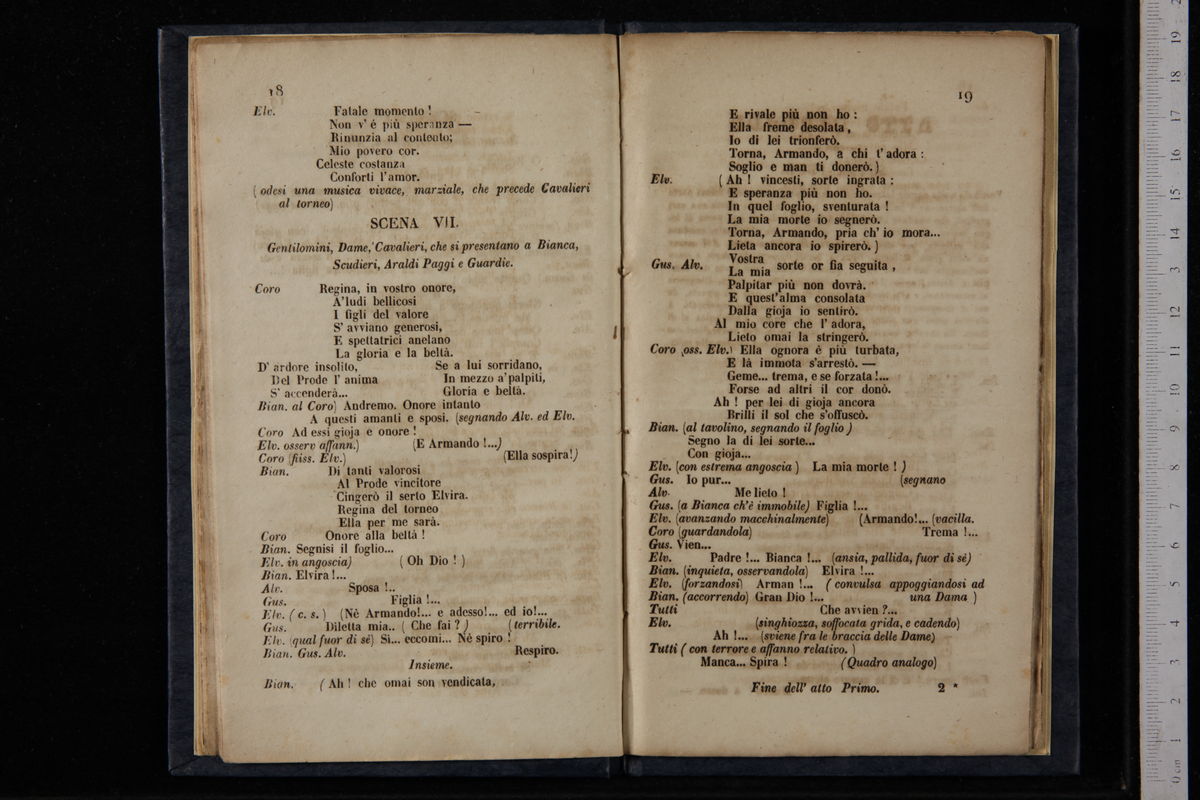 18
Elv. Fatale momento !
Non v' é più speranza —
Rinunzia al contento;
Mio povero cor.
Celeste costanza
Conforti l'amor.
( odesi una musica vivace, marziale, che precede Cavalieri
al torneo)
SCENA VII.
Gentilomini, Dame, Cavalieri, che si presentano a Bianca,
Scudieri, Araldi Paggi e Guardie.
Coro Regina, in vostro onore,
A'ludi bellicosi
I figli del valore
S' avviano generosi,
E spettatrici anelano
La gloria e la beltà.
D' ardore insolito, Se a lui sorridano,
Del Prode l' anima In mezzo a'palpiti,
S' accenderà... Gloria e beltà.
Bian. al Coro) Andremo. Onore intanto
A questi amanti e sposi. (segnando Alv. ed Elv.
Coro Ad essi gioja e onore !
Elv. osserv affann.) (E Armando !...)
Coro (fiss. Elv.) (Ella sospira!)
Bian. Di tanti valorosi
Al Prode vincitore
Cingerò il serto Elvira.
Regina del torneo
Ella per me sarà.
Coro Onore alla beltà !
Bian. Segnisi il foglio...
Elv. in angoscia) ( Oh Dio ! )
Bian. Elvira !...
Alv. Sposa !..
Gus. Figlia !...
Elv. ( c. s. ) (Nè Armando!... e adesso!... ed io!...
Gus. Diletta mia.. ( Che fai ? ) (terribile.
Elv. (qual fuor di sè) Sì... eccomi... Nè spiro !
Bian. Gus. Alv. Respiro.
Insieme.
Bian. ( Ah ! che omai son vendicata,
19
E rivale più non ho :
Ella freme desolata,
Io di lei trionferò.
Torna, Armando, a chi t' adora :
Soglio e man ti donerò.)
Elv. ( Ah ! vincesti, sorte ingrata :
E speranza più non ho.
In quel foglio, sventurata !
La mia morte io segnerò.
Torna, Armando, pria ch' io mora...
Lieta ancora io spirerò. )
Gus. Alv. Vostra
La mia sorte or fia seguita ,
Palpitar più non dovrà.
E quest'alma consolata
Dalla gioja io sentirò.
Al mio core che l' adora,
Lieto omai la stringerò.
Coro (oss. Elv.) Ella ognora è più turbata,
E là immota s'arrestò. —
Geme... trema, e se forzata !...
Forse ad altri il cor donò.
Ah ! per lei di gioja ancora
Brilli il sol che s'offuscò.
Bian. (al tavolino, segnando il foglio )
Segno la di lei sorte...
Con gioja...
Elv. (con estrema angoscia ) La mia morte ! )
Gus. Io pur... (segnano
Alv. Me lieto !
Gus. (a Bianca ch'è immobile) Figlia !...
Elv. (avanzando macchinalmente) (Armando!... (vacilla.
Coro (guardandola) Trema !...
Gus. Vien...
Elv. Padre !... Bianca !... (ansia, pallida, fuor di sè)
Bian. (inquieta, osservandola) Elvira !...
Elv. (forzandosi) Arman !... ( convulsa appoggiandosi ad
Bian. (accorrendo) Gran Dio !... una Dama )
Tutti Che avvien ?...
Elv. (singhiozza, soffocata grida, e cadendo)
Ah !... (sviene fra le braccia delle Dame)
Tutti ( con terrore e affanno relativo. )
Manca... Spira ! (Quadro analogo)
Fine dell' atto Primo. 2 *
0 cm 1 2 3 4 5 6 7 8 9 10 11 12 3 14 15 16 17 18 19 2